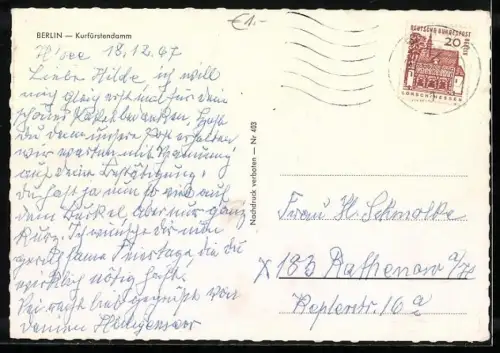 €1.-
BERLIN — Kurfürstendamm
18.12.67
Liebe Hilde, ich will
gleich erst mal für dein
schönes Paket bedanken. Hast
du denn unsere Post erhalten
wir warten mit Spannung
auf deine Bestätigung.
Du hast ja nun so viel auf
dem Buckel, aber nur ganz
kurz. Ich wünsche dir nun
geruhsame Feiertage die du
wirklich nötig hast.
herzlich gegrüßt von
deinen
Nachdruck verboten — Nr 403
DEUTSCHE BUNDESPOST
BERLIN
20
LORSCH/HESSEN
Frau H. Schmolke
X 183 Rathenow a/H
Keplerstr. 16 a